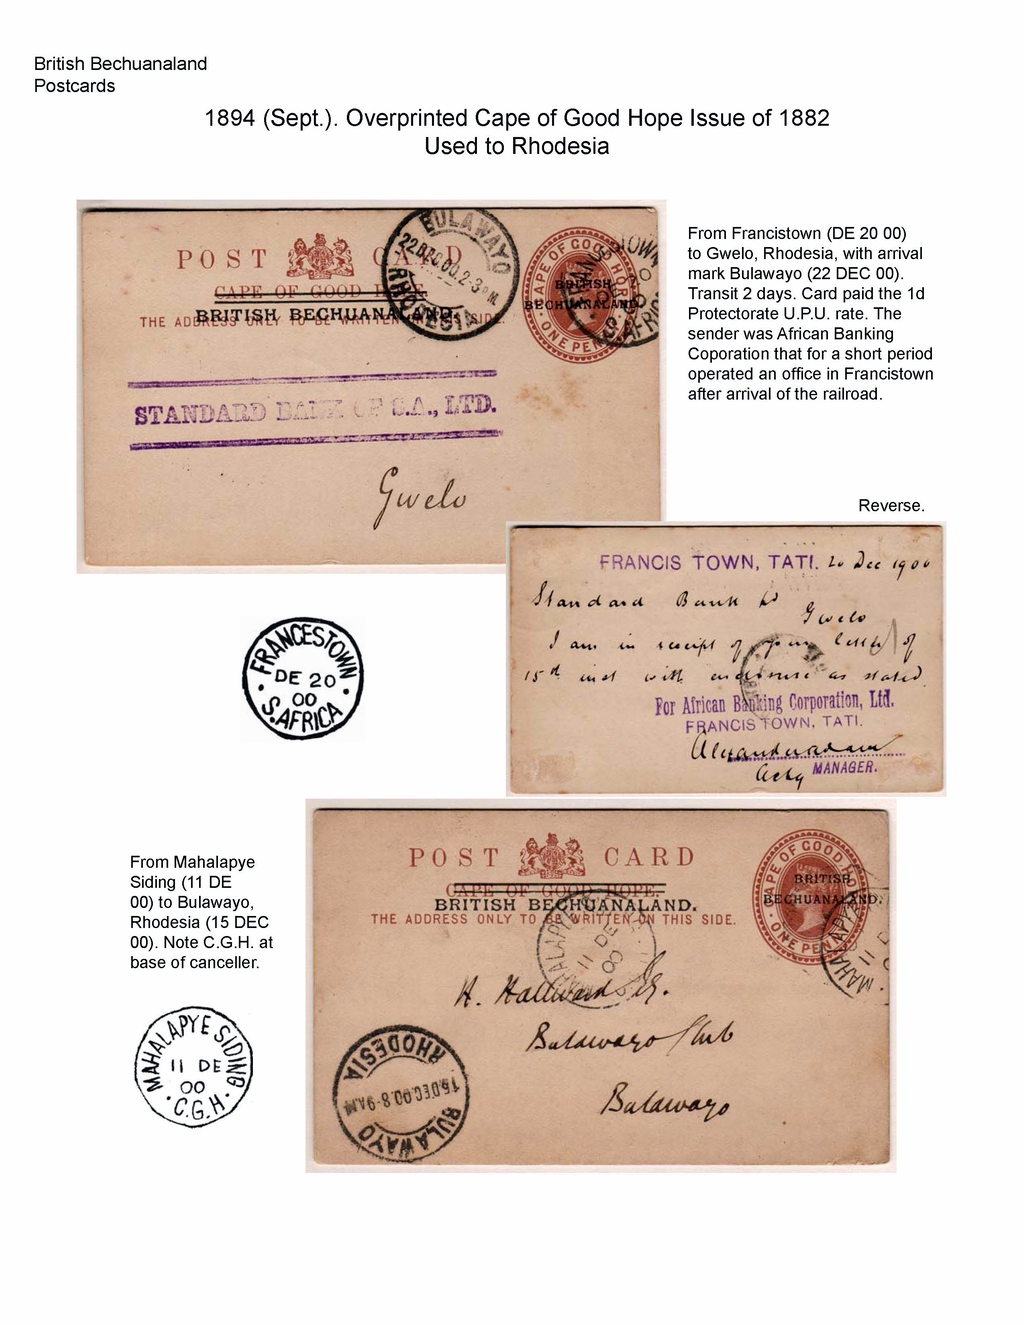 British Bechuanaland
Postcards
1894 (Sept.). Overprinted Cape of Good Hope Issue of 1882
Used to Rhodesia
POST CARD
CAPE OF GOOD HOPE.
BRITISH BECHUANALAND.
THE ADDRESS ONLY TO BE WRITTEN ON THIS SIDE.
BULAWAYO
22 DEC 00. 2-3 PM.
RHODESIA
CAPE OF GOOD HOPE
BRITISH
BECHUANALAND.
ONE PENNY
STANDARD BANK OF S.A., LTD.
Gwelo
From Francistown (DE 20 00)
to Gwelo, Rhodesia, with arrival
mark Bulawayo (22 DEC 00).
Transit 2 days. Card paid the 1d
Protectorate U.P.U. rate. The
sender was African Banking
Coporation that for a short period
operated an office in Francistown
after arrival of the railroad.
Reverse.
FRANCIS TOWN, TATI. 20 Dec 1900
Standard Bank Ld
Gwelo
I am in receipt of your letter of
15th inst with enclosures as stated
For African Banking Corporation, Ltd.
FRANCIS TOWN, TATI.
Actg MANAGER.
FRANCESTOWN
DE 20
00
S. AFRICA
From Mahalapye
Siding (11 DE
00) to Bulawayo,
Rhodesia (15 DEC
00). Note C.G.H. at
base of canceller.
MAHALAPYE SIDING
11 DE
00
C.G.H.
POST CARD
CAPE OF GOOD HOPE.
BRITISH BECHUANALAND.
THE ADDRESS ONLY TO BE WRITTEN ON THIS SIDE.
CAPE OF GOOD HOPE
BRITISH
BECHUANALAND.
ONE PENNY
MAHALAPYE
11 DE
00
H. Hallward Esq.
Bulawayo Club
Bulawayo
RHODESIA
15 DEC 00. 8-9 AM
BULAWAYO